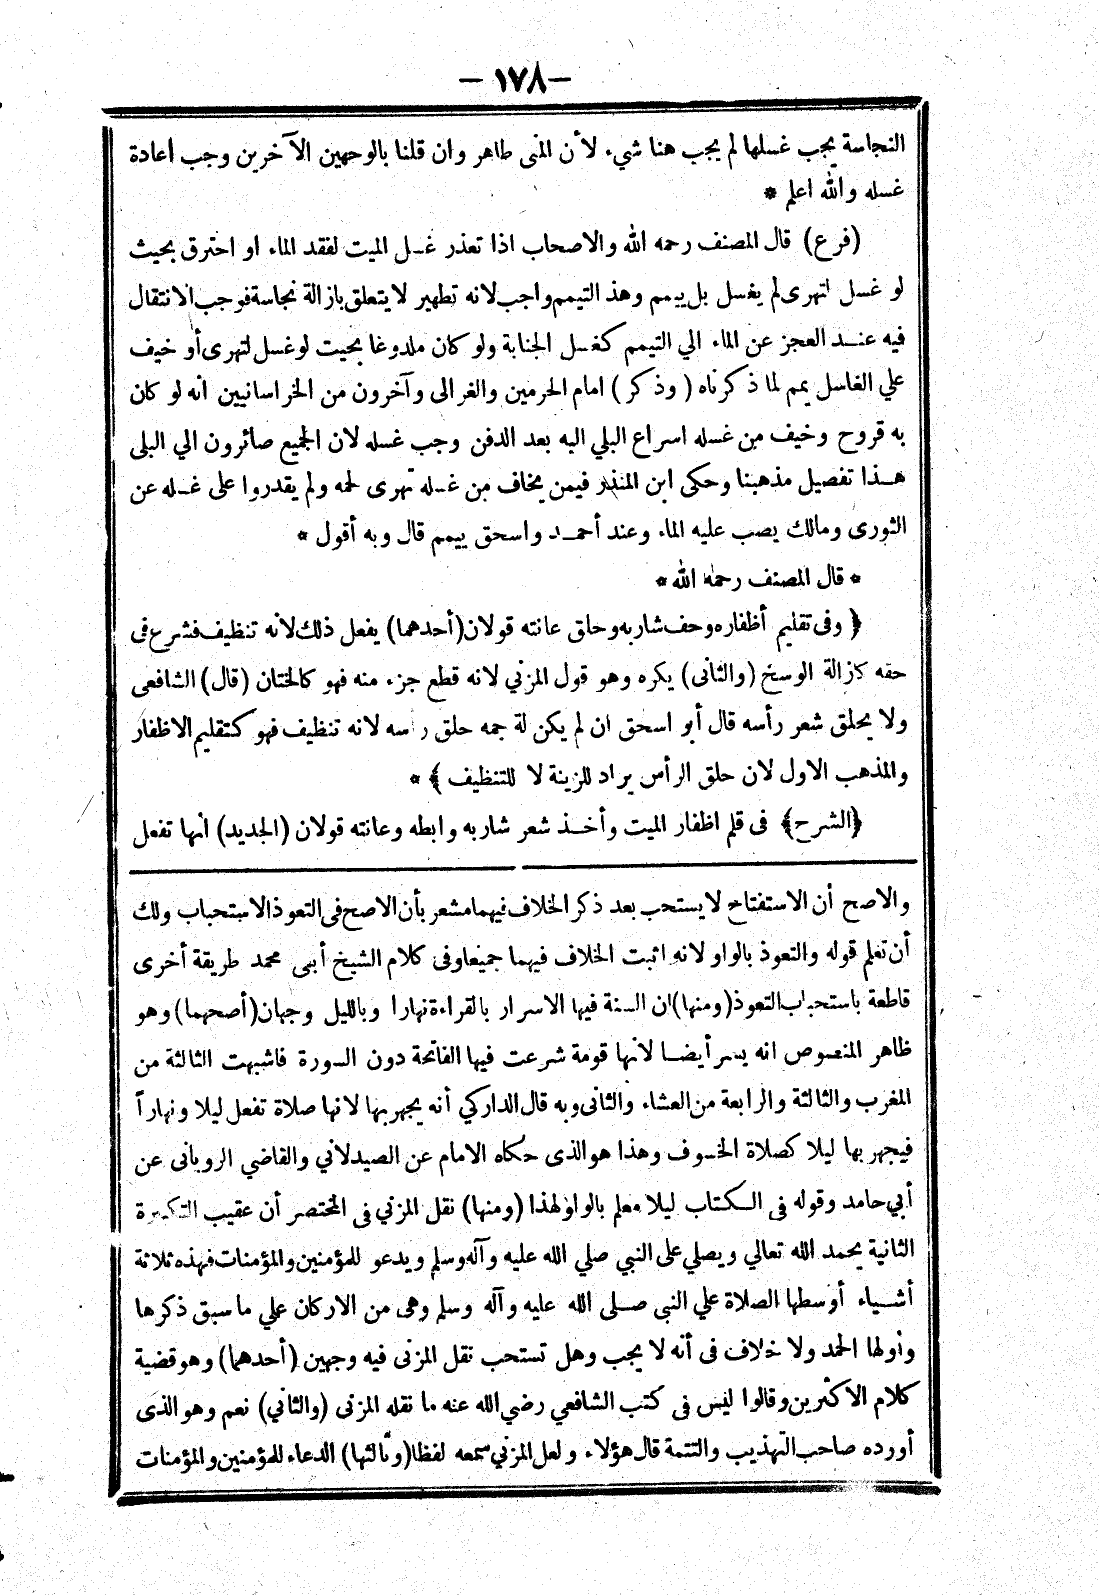 — ١٧٨ —
النجاسة يجب غسلها لم يجب هنا شيء لأن المني طاهر وان قلنا بالوجهين الآخرين وجب اعادة
غسله والله اعلم *
(فرع) قال المصنف رحمه الله والاصحاب اذا تعذر غسل الميت لفقد الماء او احترق بحيث
لو غسل لتهرى لم يغسل بل ييمم وهذ التيمم واجب لانه تطهير لا يتعلق بازالة نجاسة فوجب الانتقال
فيه عند العجز عن الماء الي التيمم كغسل الجنابة ولو كان ملدوغا بحيث لو غسل لتهرى أو خيف
علي الغاسل يمم لما ذكرناه (وذكر) امام الحرمين والغزالى وآخرون من الخراسانيين انه لو كان
به قروح وخيف من غسله اسراع البلي اليه بعد الدفن وجب غسله لان الجميع صائرون الي البلى
هذا تفصيل مذهبنا وحكى ابن المنذر فيمن يخاف من غسله تهرى لحمه ولم يقدروا على غسله عن
الثورى ومالك يصب عليه الماء وعند أحمد واسحق ييمم قال وبه أقول *
* قال المصنف رحمه الله *
﴿ وفى تقليم أظفاره وحف شاربه وحلق عانته قولان (أحدهما) يفعل ذلك لانه تنظيف فشرع فى
حقه كازالة الوسخ (والثانى) يكره وهو قول المزني لانه قطع جزء منه فهو كالختان (قال) الشافعى
ولا يحلق شعر رأسه قال أبو اسحق ان لم يكن له جمه حلق رأسه لانه تنظيف فهو كتقليم الاظفار
والمذهب الاول لان حلق الرأس يراد للزينة لا للتنظيف ﴾ *
﴿الشرح﴾ فى قلم اظفار الميت وأخذ شعر شاربه وابطه وعانته قولان (الجديد) انها تفعل
والاصح أن الاستفتاح لا يستحب بعد ذكر الخلاف فيهما مشعر بأن الاصح فى التعوذ الاستحباب ولك
أن تعلم قوله والتعوذ بالواو لانه اثبت الخلاف فيهما جميعا وفى كلام الشيخ أبى محمد طريقة أخرى
قاطعة باستحباب التعوذ (ومنها) ان السنة فيها الاسرار بالقراءة نهارا وبالليل وجهان (أصحهما) وهو
ظاهر المنصوص انه يسر أيضا لانها قومة شرعت فيها الفاتحة دون السورة فاشبهت الثالثة من
المغرب والثالثة والرابعة من العشاء والثانى وبه قال الداركي أنه يجهر بها لانها صلاة تفعل ليلا ونهاراً
فيجهر بها ليلا كصلاة الخسوف وهذا هو الذى حكاه الامام عن الصيدلاني والقاضي الرويانى عن
أبي حامد وقوله فى الكتاب ليلا معلم بالواو لهذا (ومنها) نقل المزني فى المختصر أن عقيب التكبيرة
الثانية يحمد الله تعالي ويصلي على النبي صلي الله عليه وآله وسلم ويدعو للمؤمنين والمؤمنات فهذه ثلاثة
أشياء أوسطها الصلاة علي النبي صلى الله عليه وآله وسلم وهى من الاركان علي ما سبق ذكرها
وأولها الحمد ولا خلاف فى أنه لا يجب وهل تستحب نقل المزنى فيه وجهين (أحدهما) وهو قضية
كلام الاكثرين وقالوا ليس فى كتب الشافعي رضي الله عنه ما نقله المزنى (والثاني) نعم وهو الذى
أورده صاحب التهذيب والتتمة قال هؤلاء ولعل المزني سمعه لفظا (وثالثها) الدعاء للمؤمنين والمؤمنات